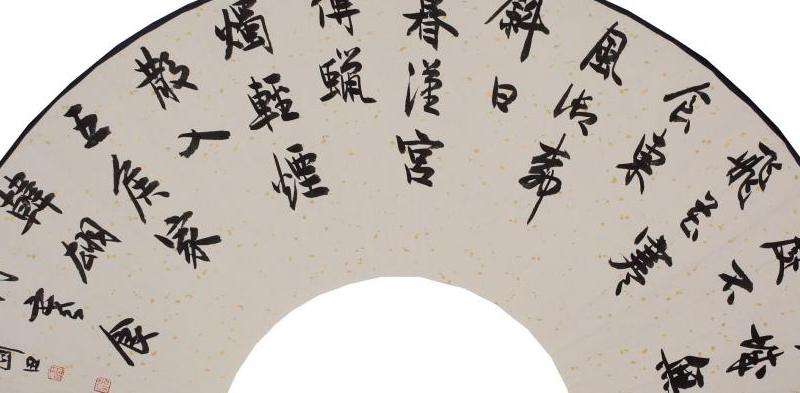 城無
處不
飛花寒
食東
風御柳
斜日
暮漢宮
傳蠟
燭輕煙
散入
五侯家
韓翃